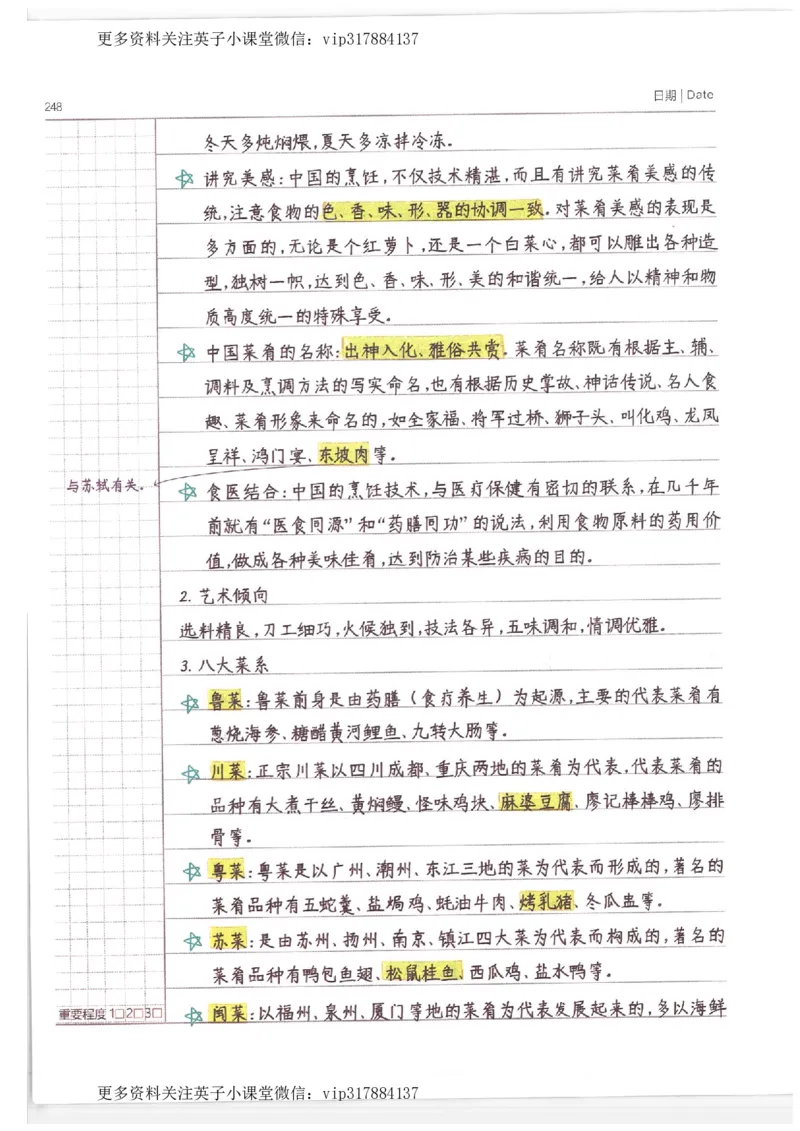 更多资料关注英子小课堂微信：vip317884137
日期 | Date
248
冬天多炖焖煨,夏天多凉拌冷冻。
讲究美感:中国的烹饪,不仅技术精湛,而且有讲究菜肴美感的传
统,注意食物的色、香、味、形、器的协调一致。对菜肴美感的表现是
多方面的,无论是个红萝卜,还是一个白菜心,都可以雕出各种造
型,独树一帜,达到色、香、味、形、美的和谐统一,给人以精神和物
质高度统一的特殊享受。
中国菜肴的名称:出神入化、雅俗共赏。菜肴名称既有根据主、辅、
调料及烹调方法的写实命名,也有根据历史掌故、神话传说、名人食
趣、菜肴形象来命名的,如全家福、将军过桥、狮子头、叫化鸡、龙凤
呈祥、鸿门宴、东坡肉等。
与苏轼有关。
食医结合:中国的烹饪技术,与医疗保健有密切的联系,在几千年
前就有“医食同源”和“药膳同功”的说法,利用食物原料的药用价
值,做成各种美味佳肴,达到防治某些疾病的目的。
2. 艺术倾向
选料精良,刀工细巧,火候独到,技法各异,五味调和,情调优雅。
3. 八大菜系
鲁菜:鲁菜前身是由药膳（食疗养生）为起源,主要的代表菜肴有
葱烧海参、糖醋黄河鲤鱼、九转大肠等。
川菜:正宗川菜以四川成都、重庆两地的菜肴为代表,代表菜肴的
品种有大煮干丝、黄焖鳗、怪味鸡块、麻婆豆腐、廖记棒棒鸡、廖排
骨等。
粤菜:粤菜是以广州、潮州、东江三地的菜为代表而形成的,著名的
菜肴品种有五蛇羹、盐焗鸡、蚝油牛肉、烤乳猪、冬瓜盅等。
苏菜:是由苏州、扬州、南京、镇江四大菜为代表而构成的,著名的
菜肴品种有鸭包鱼翅、松鼠桂鱼、西瓜鸡、盐水鸭等。
闽菜:以福州、泉州、厦门等地的菜肴为代表发展起来的,多以海鲜
重要程度 1□2□3□
更多资料关注英子小课堂微信：vip317884137